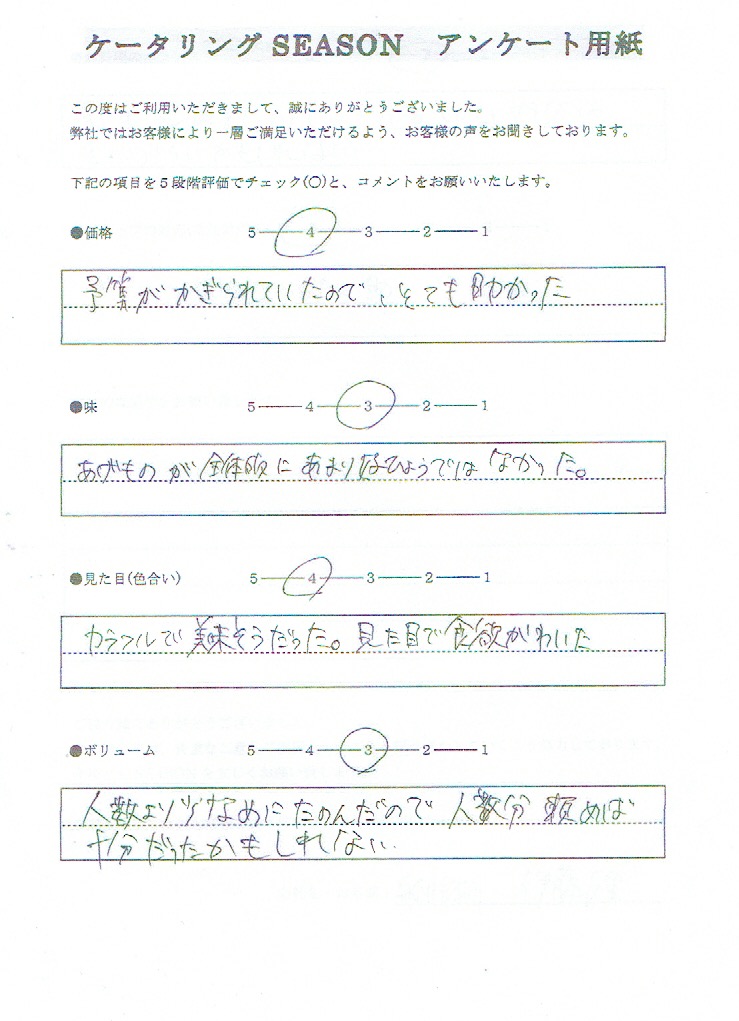 ケータリング SEASON　アンケート用紙
この度はご利用いただきまして、誠にありがとうございました。
弊社ではお客様により一層ご満足いただけるよう、お客様の声をお聞きしております。
下記の項目を５段階評価でチェック(〇)と、コメントをお願いいたします。
●価格 5 4 3 2 1
予算がかぎられていたので、とても助かった
●味 5 4 3 2 1
あげものが全体的にあまり なかった。
●見た目(色合い) 5 4 3 2 1
カラフルで美味そうだった。見た目で食欲がわいた
●ボリューム 5 4 3 2 1
人数より少なめにたのんだので人数分頼めば
十分だったかもしれない.